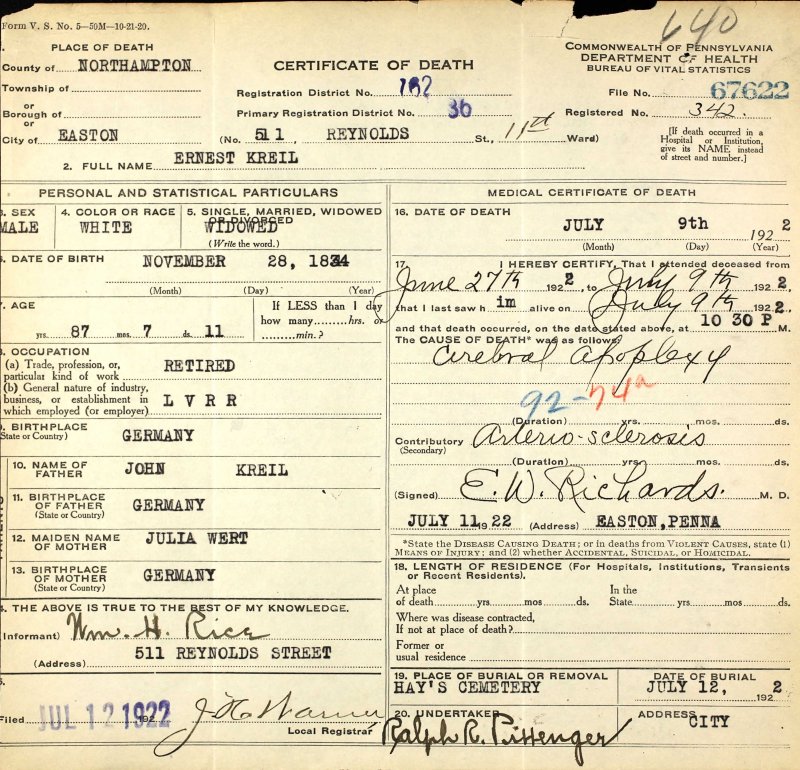 Form V. S. No. 5—50M—10-21-20.
640
PLACE OF DEATH
County of NORTHAMPTON
Township of
or
Borough of
or
City of EASTON
CERTIFICATE OF DEATH
Registration District No. 162
Primary Registration District No. 36
(No. 511, REYNOLDS St., 11th Ward)
COMMONWEALTH OF PENNSYLVANIA
DEPARTMENT OF HEALTH
BUREAU OF VITAL STATISTICS
File No. 67622
Registered No. 342.
[If death occurred in a
Hospital or Institution,
give its NAME instead
of street and number.]
2. FULL NAME ERNEST KREIL
PERSONAL AND STATISTICAL PARTICULARS
3. SEX
MALE
4. COLOR OR RACE
WHITE
5. SINGLE, MARRIED, WIDOWED
OR DIVORCED
WIDOWED
(Write the word.)
6. DATE OF BIRTH NOVEMBER 28, 1834
(Month) (Day) (Year)
7. AGE
87 yrs. 7 mos. 11 ds.
If LESS than 1 day
how many.........hrs. or
.........min.?
8. OCCUPATION
(a) Trade, profession, or,
particular kind of work RETIRED
(b) General nature of industry,
business, or establishment in
which employed (or employer) L V R R
9. BIRTHPLACE
(State or Country) GERMANY
PARENTS
10. NAME OF
FATHER JOHN KREIL
11. BIRTHPLACE
OF FATHER
(State or Country) GERMANY
12. MAIDEN NAME
OF MOTHER JULIA WERT
13. BIRTHPLACE
OF MOTHER
(State or Country) GERMANY
14. THE ABOVE IS TRUE TO THE BEST OF MY KNOWLEDGE.
(Informant) Wm. H. Rice
(Address) 511 REYNOLDS STREET
15.
Filed JUL 12 1922 192
Local Registrar
MEDICAL CERTIFICATE OF DEATH
16. DATE OF DEATH
JULY 9th 1922
(Month) (Day) (Year)
17. I HEREBY CERTIFY, That I attended deceased from
June 27th 1922, to July 9th 1922,
that I last saw him alive on July 9th 1922,
and that death occurred, on the date stated above, at 10 30 P M.
The CAUSE OF DEATH* was as follows:
Cerebral Apoplexy
92-74a
(Duration) yrs. mos. ds.
Contributory Arterio-sclerosis
(Secondary)
(Duration) yrs. mos. ds.
(Signed) E. W. Richards. M. D.
JULY 11 1922 (Address) EASTON, PENNA
*State the DISEASE CAUSING DEATH; or in deaths from VIOLENT CAUSES, state (1)
MEANS OF INJURY; and (2) whether ACCIDENTAL, SUICIDAL, OR HOMICIDAL.
18. LENGTH OF RESIDENCE (For Hospitals, Institutions, Transients
or Recent Residents).
At place
of death yrs mos ds.
In the
State yrs mos ds.
Where was disease contracted,
If not at place of death?
Former or
usual residence
19. PLACE OF BURIAL OR REMOVAL
HAY'S CEMETERY
DATE OF BURIAL
JULY 12, 1922
20. UNDERTAKER
Ralph R. Pittenger
ADDRESS
CITY